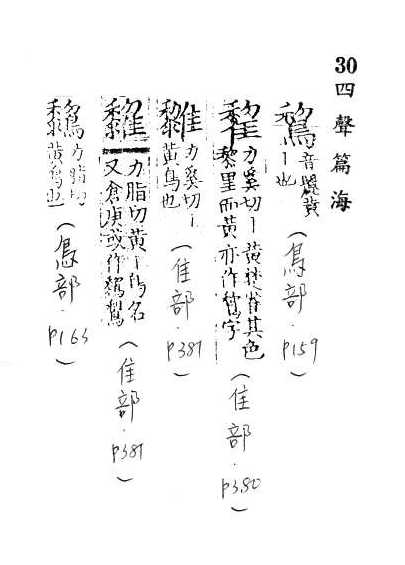 30 四聲篇海
音黃丨也(鳥部．P159)
力奚切丨黃楚雀其色黎黑而黃亦作字(隹部．P380)
力奚切丨黃鳥也(隹部．P381)
力脂切黃丨鳥名又倉庚或作(隹部．P381)
力脂切黃鳥也(鳥部．P163)